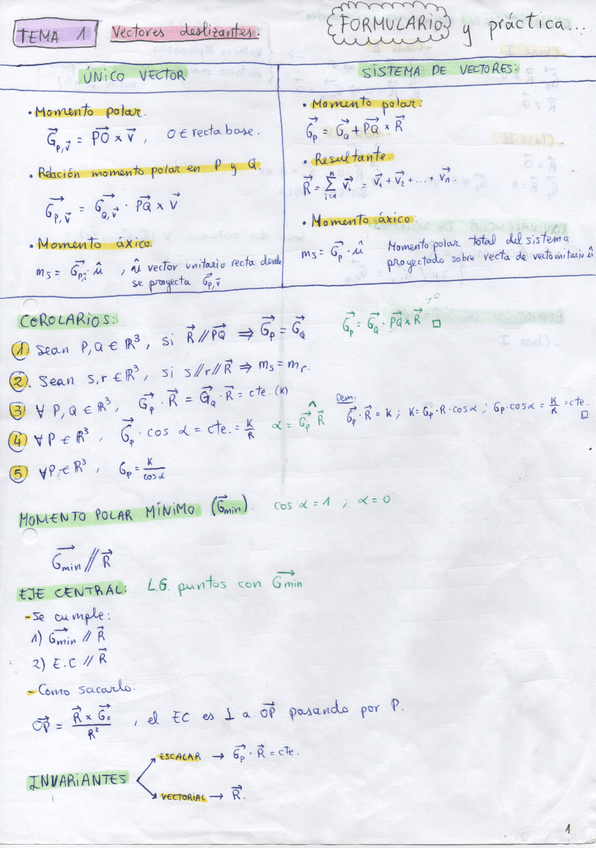 TEMA 1 Vectores deslizantes. FORMULARIO y práctica...
ÚNICO VECTOR
• Momento polar.
G⃗P,v⃗ = PO⃗ × v⃗ , O ∈ recta base.
• Relación momento polar en P y Q.
G⃗P,v⃗ = G⃗Q,v⃗ · PQ⃗ × v⃗
• Momento áxico.
ms = G⃗P,v⃗ · û , û vector unitario recta donde
se proyecta G⃗P,v⃗
SISTEMA DE VECTORES:
• Momento polar:
G⃗P = G⃗Q + PQ⃗ × R⃗
• Resultante.
R⃗ = Σ v⃗i = v⃗1 + v⃗2 + ... + v⃗n
• Momento áxico:
ms = G⃗P · û Momento polar total del sistema
proyectado sobre recta de vector unitario û
COROLARIOS:
① Sean P, Q ∈ R³, si R⃗ // PQ⃗ ⇒ G⃗P = G⃗Q G⃗P = G⃗Q · PQ⃗ × R⃗ → 0 □
②. Sean s, r ∈ R³, si s // r // R⃗ ⇒ ms = mr.
③ ∀ P, Q ∈ R³, G⃗P · R⃗ = G⃗Q · R⃗ = cte. (K)
④ ∀ P ∈ R³, G⃗P · cos α = cte. = K/R α = G⃗P ^ R⃗
Dem: G⃗P · R⃗ = K ; K = GP · R · cos α ; GP · cos α = K/R = cte. □
⑤ ∀ P ∈ R³, GP = K/cos α
MOMENTO POLAR MÍNIMO (G⃗min) cos α = 1 ; α = 0
G⃗min // R⃗
EJE CENTRAL: L.G. puntos con G⃗min
- Se cumple:
1) G⃗min // R⃗
2) E.C // R⃗
- Cómo sacarlo.
OP⃗ = R⃗ × G⃗0 / R² , el EC es ⊥ a OP⃗ pasando por P.
INVARIANTES
ESCALAR → G⃗P · R⃗ = cte.
VECTORIAL → R⃗.
1